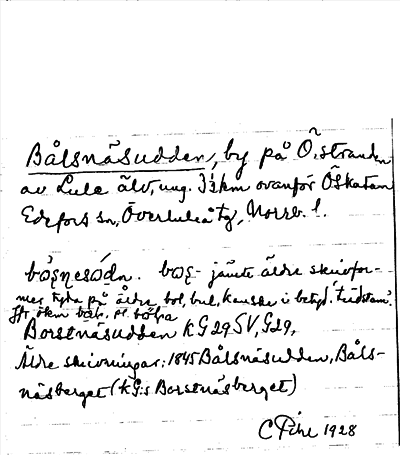 Bålsnäsudden, by på Ö. stranden
av Lule älv, ung. 3 km ovanför Öskatan
Edefors sn, Överluleå tg, Norrb. l.
jämte äldre skrivfor-
mer tyda på äldre bol, bul, kanske i betyd. 'trädstam'.
Borstnäsudden KG29SV, G29,
Äldre skrivningar: 1845 Bålsnäsudden, Båls-
näsberget (KG:s Borstnäsberget)
C Pihl 1928